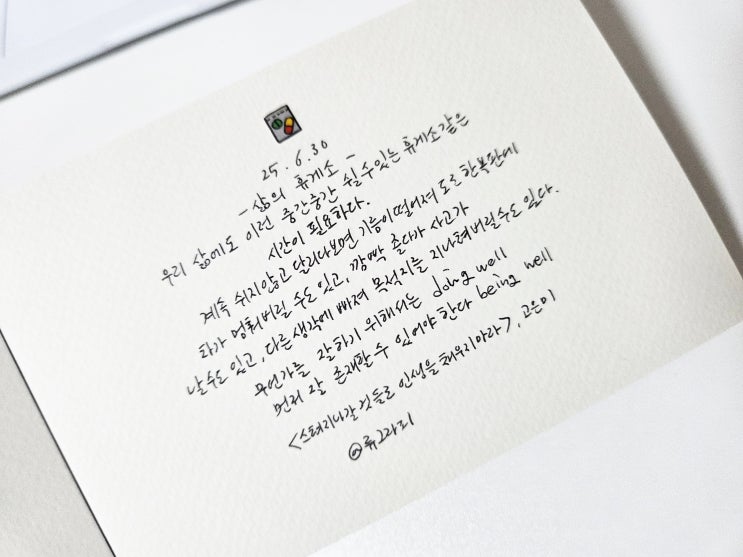 25. 6. 30
- 삶의 휴게소 -
우리 삶에도 이런 중간중간 쉴 수 있는 휴게소같은
시간이 필요하다.
계속 쉬지않고 달리다보면 기름이 떨어져 도로 한복판에
차가 멈춰버릴 수도 있고, 깜빡 졸다가 사고가
날수도 있고, 다른 생각에 빠져 목적지를 지나쳐버릴수도 있다.
무언가를 잘하기 위해서는 doing well
먼저 잘 존재할 수 있어야 한다 being well
<스쳐지나갈 것들로 인생을 채우지마라>, 고은미
@류그라피